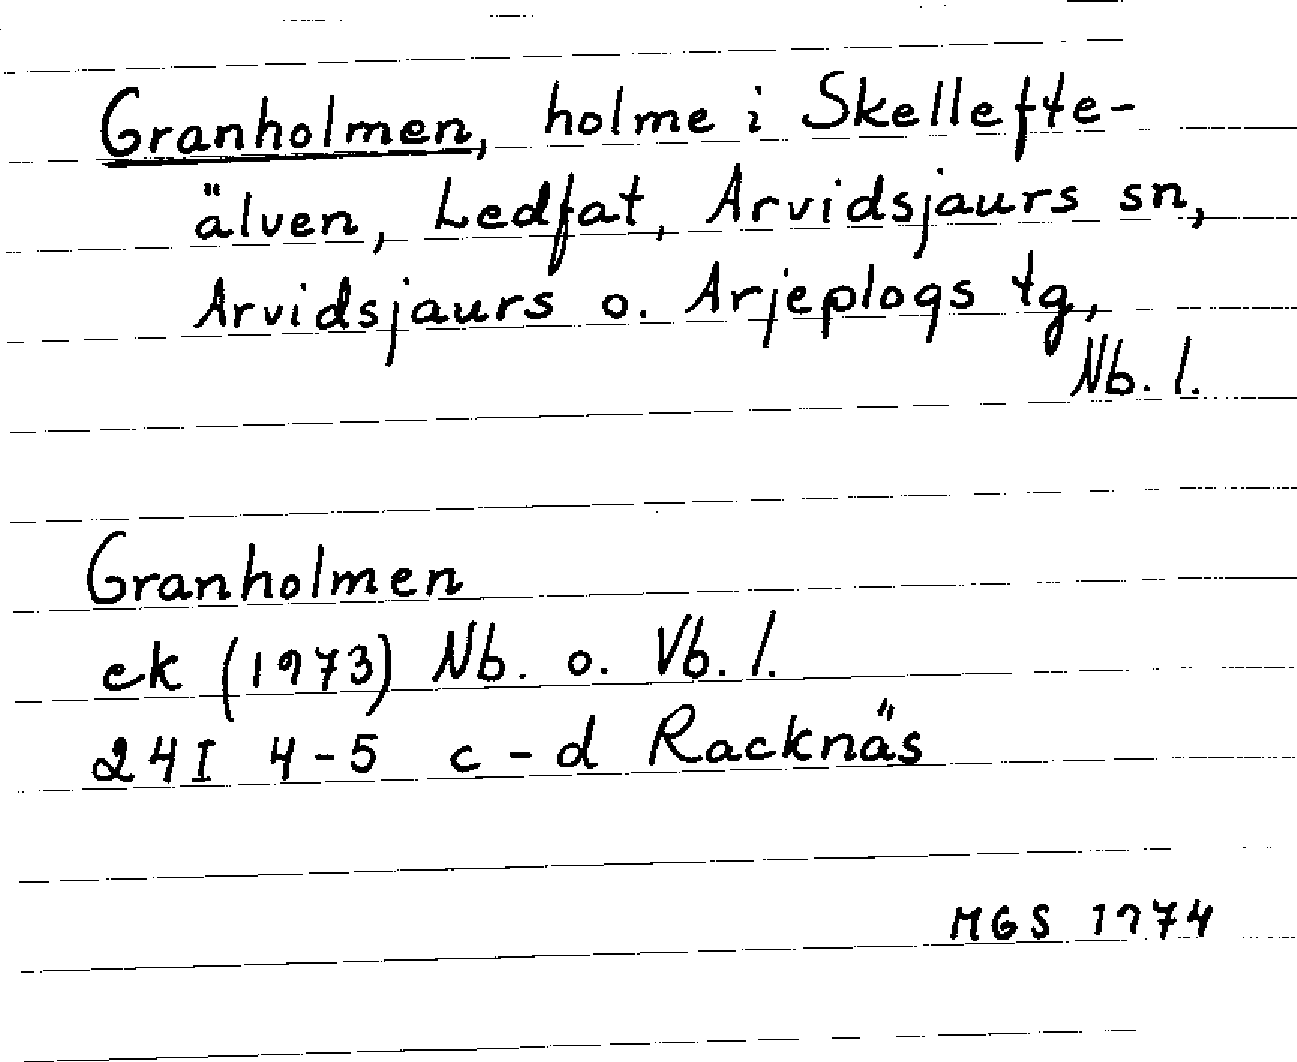 Granholmen, holme i Skellefte-
älven, Ledfat, Arvidsjaurs sn,
Arvidsjaurs o. Arjeplogs tg,
Nb. l.
Granholmen
ek (1973) Nb. o. Vb. l.
24I 4-5 c-d Racknäs
MGS 1974